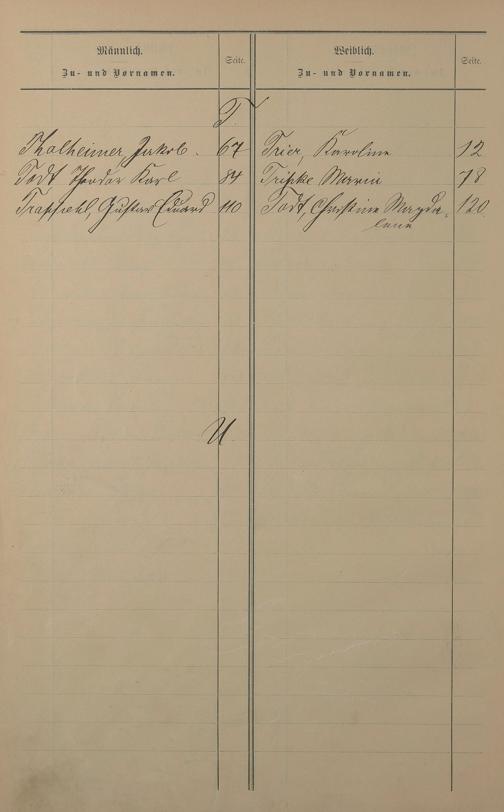 Männlich. Weiblich.
Zu- und Vornamen. Seite. Zu- und Vornamen. Seite.
T.
Thalheimer, Jakob. 67 Trier, Karoline 12
Todt Theodor Karl 84 Maria 78
Gustav Eduard 110 Todt, Christine Magda- 120
lene
U